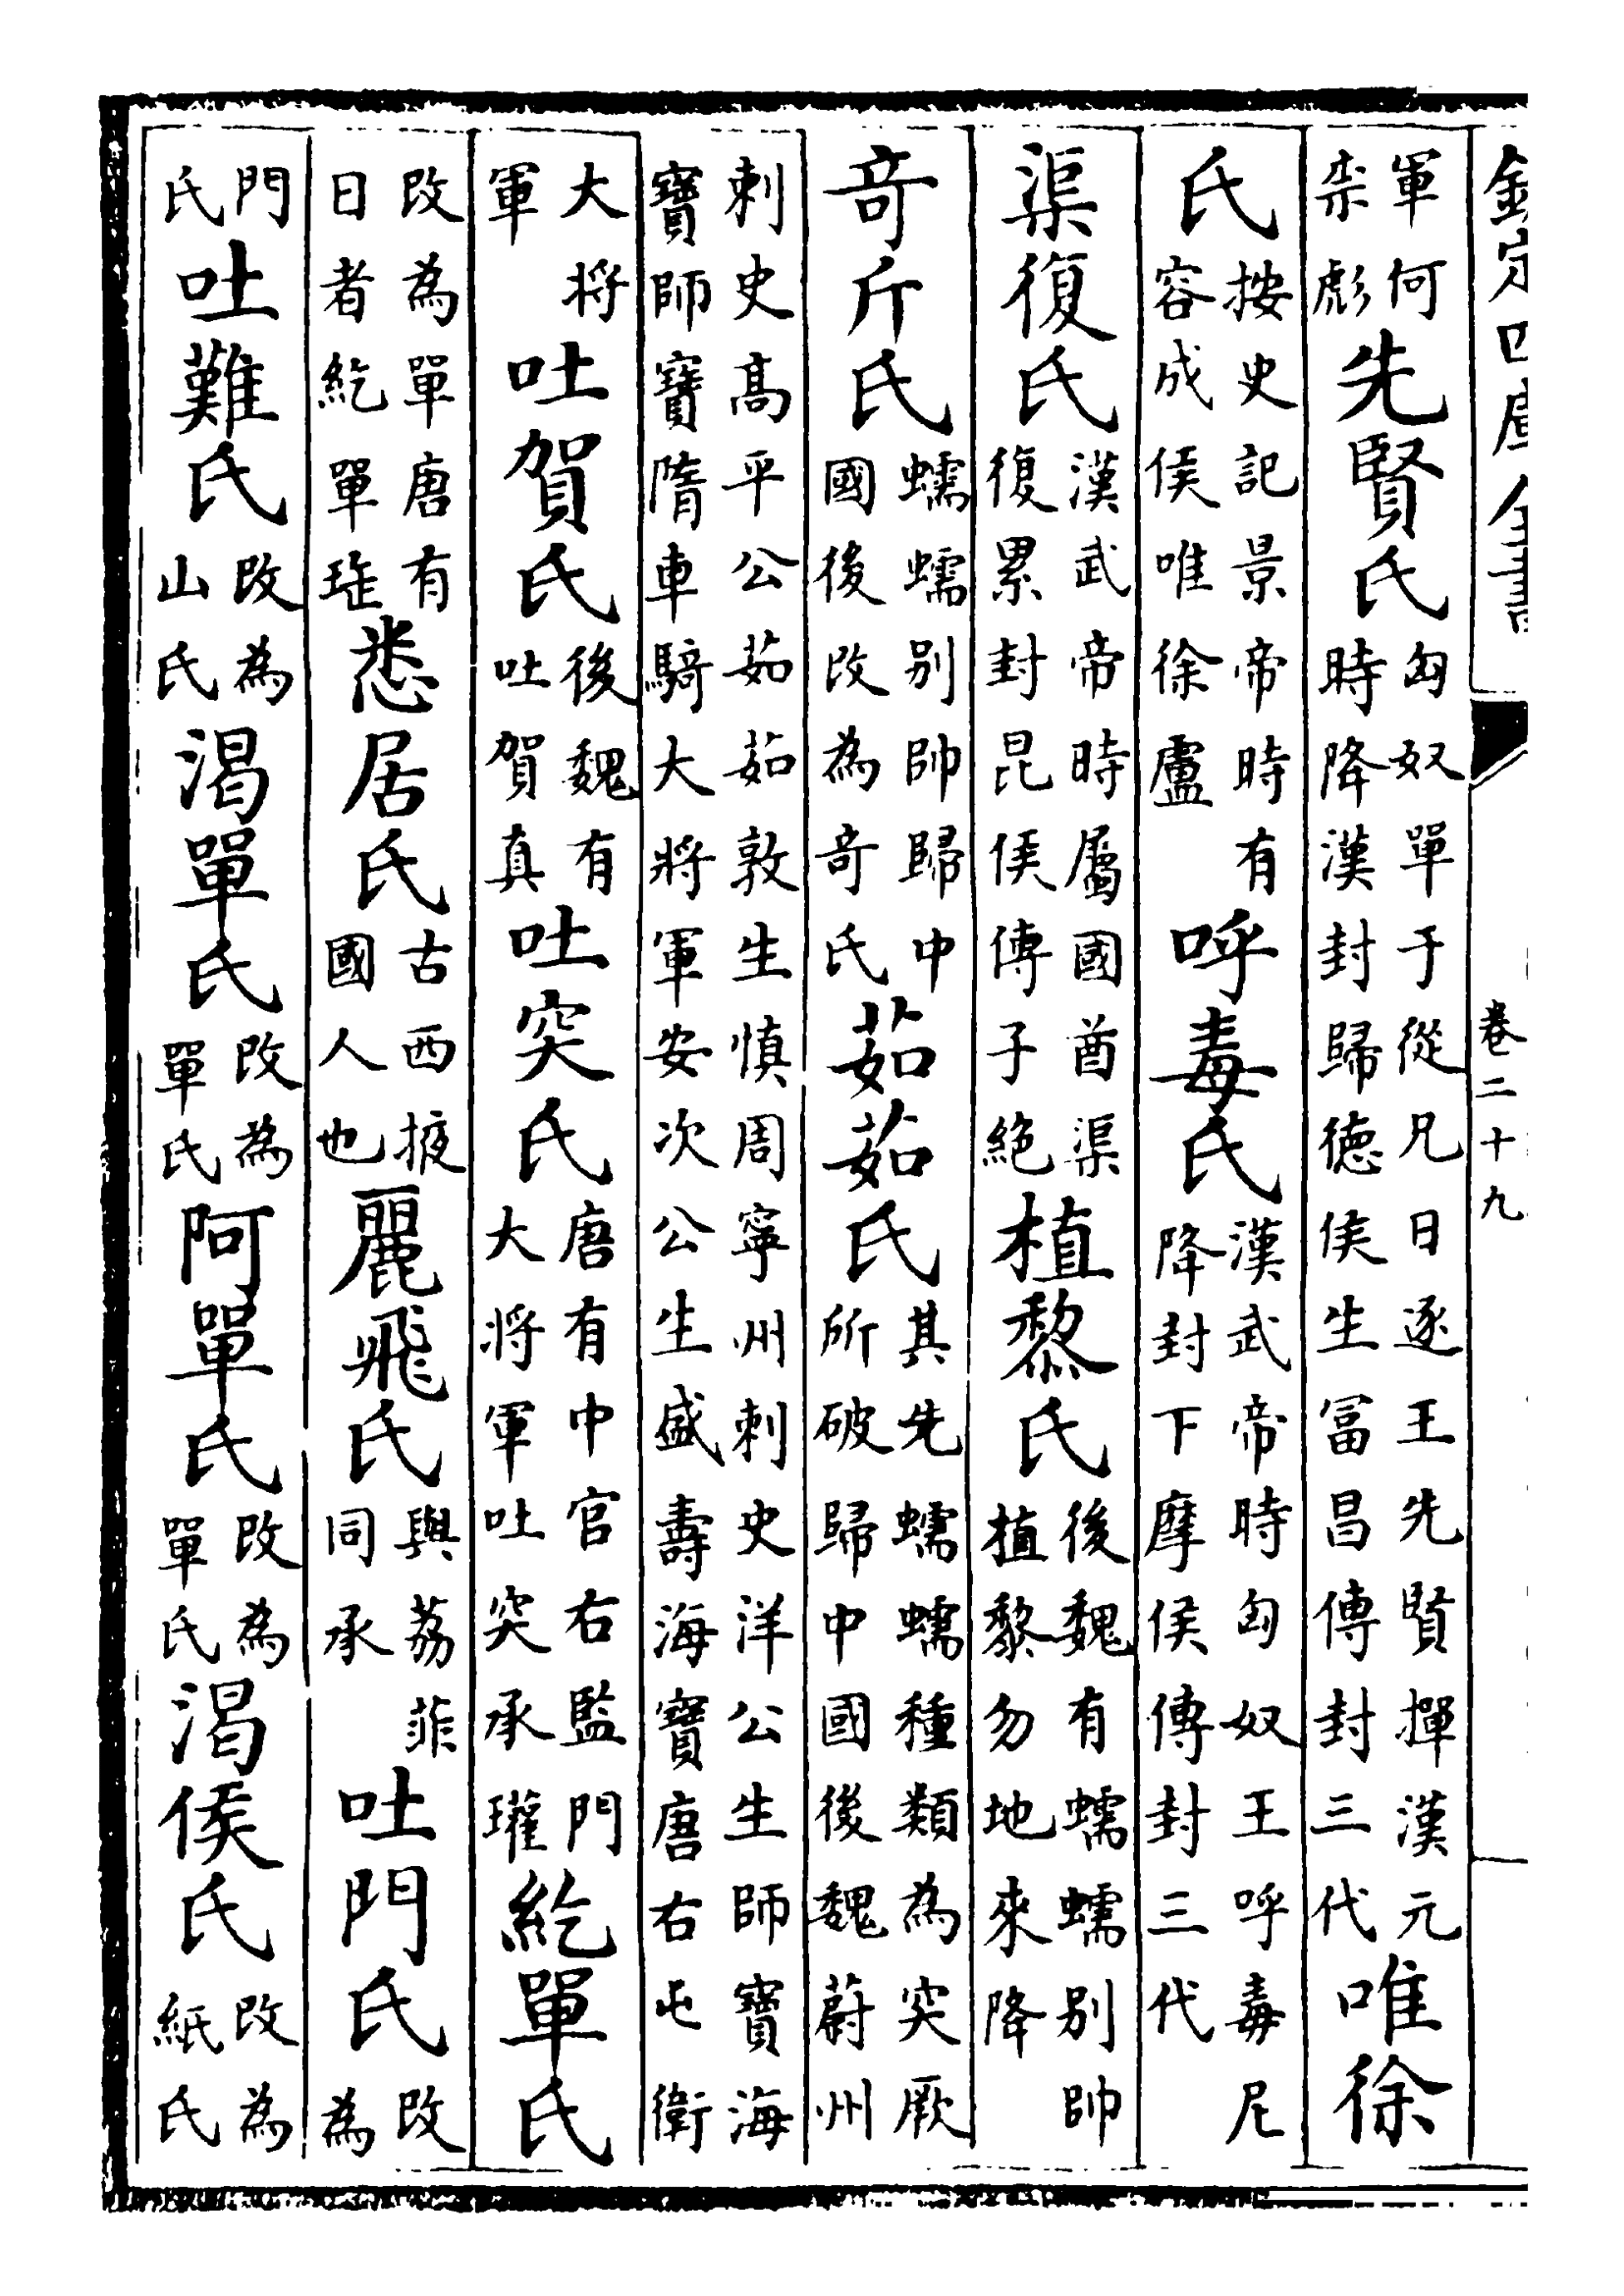 欽定四庫全書
卷二十九
軍何
柰彪先賢氏匈奴單于從兄日逐王先賢撣漢元
時降漢封歸德侯生冨昌傳封三代唯徐
氏按史記景帝時有
容成侯唯徐盧呼毒氏漢武帝時匈奴王呼毒尼
降封下摩侯傳封三代
渠復氏漢武帝時屬國酋渠
復累封昆侯傳子絶植黎氏後魏有蠕蠕别帥
植黎勿地來降
竒斤氏蠕蠕别帥歸中
國後改為竒氏茹茹氏其先蠕蠕種類為突厥
所破歸中國後魏蔚州
刺史髙平公茹茹敦生慎周寧州刺史洋公生師寶海
寶師寶隋車騎大將軍安次公生盛壽海寶唐右屯衛
大將
軍吐賀氏後魏有
吐賀真吐突氏唐有中官右監門
大將軍吐突承瓘紇單氏
改為單唐有
日者紇單琁悉居氏古西掖
國人也麗飛氏與荔菲
同承吐門氏改
為
門
氏吐難氏改為
山氏渴單氏改為
單氏阿單氏改為
單氏渴侯氏改為
緱氏